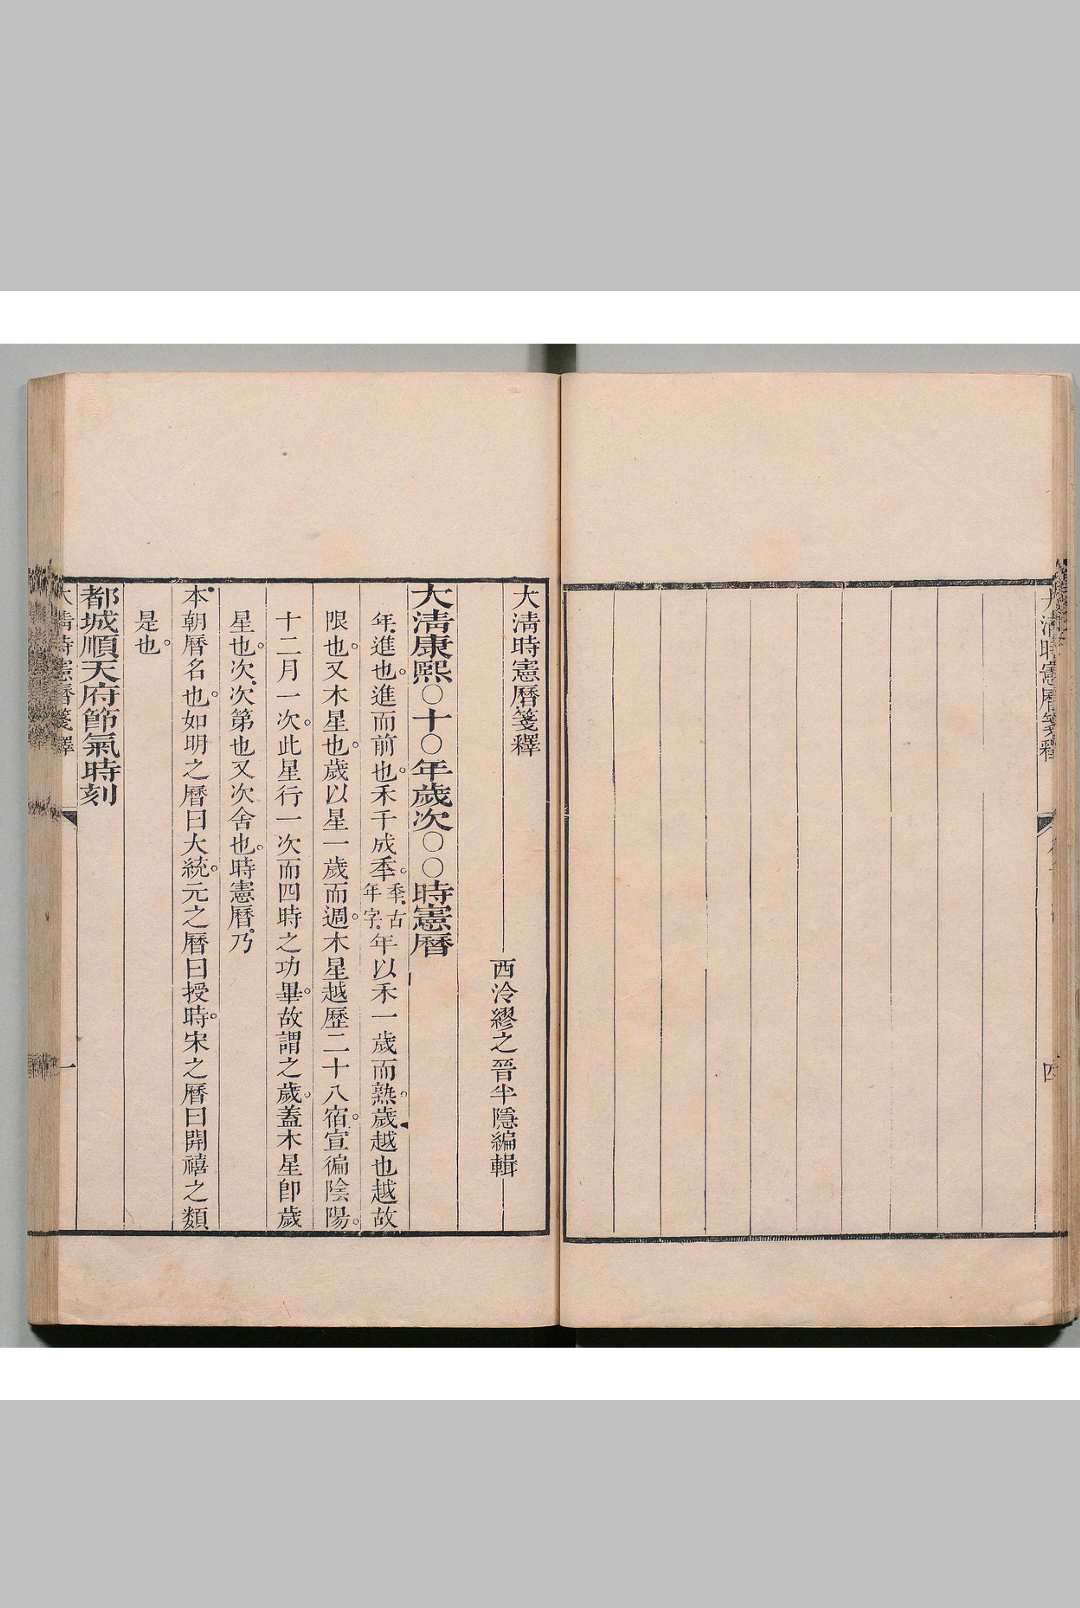 大清時憲曆箋釋
四
大清時憲曆箋釋
西泠繆之晉半隱編輯
大清康熙〇十〇年歲次〇〇時憲曆
年進也進而前也禾千成秊秊古年字年以禾一歲而熟歲越也越故
限也又木星也歲以星一歲而週木星越歷二十八宿宣徧陰陽
十二月一次此星行一次而四時之功畢故謂之歲蓋木星卽歲
星也次次第也又次舍也時憲曆乃
本朝曆名也如明之曆曰大統元之曆曰授時宋之曆曰開禧之類
是也
都城順天府節氣時刻
大清時憲曆箋釋
一